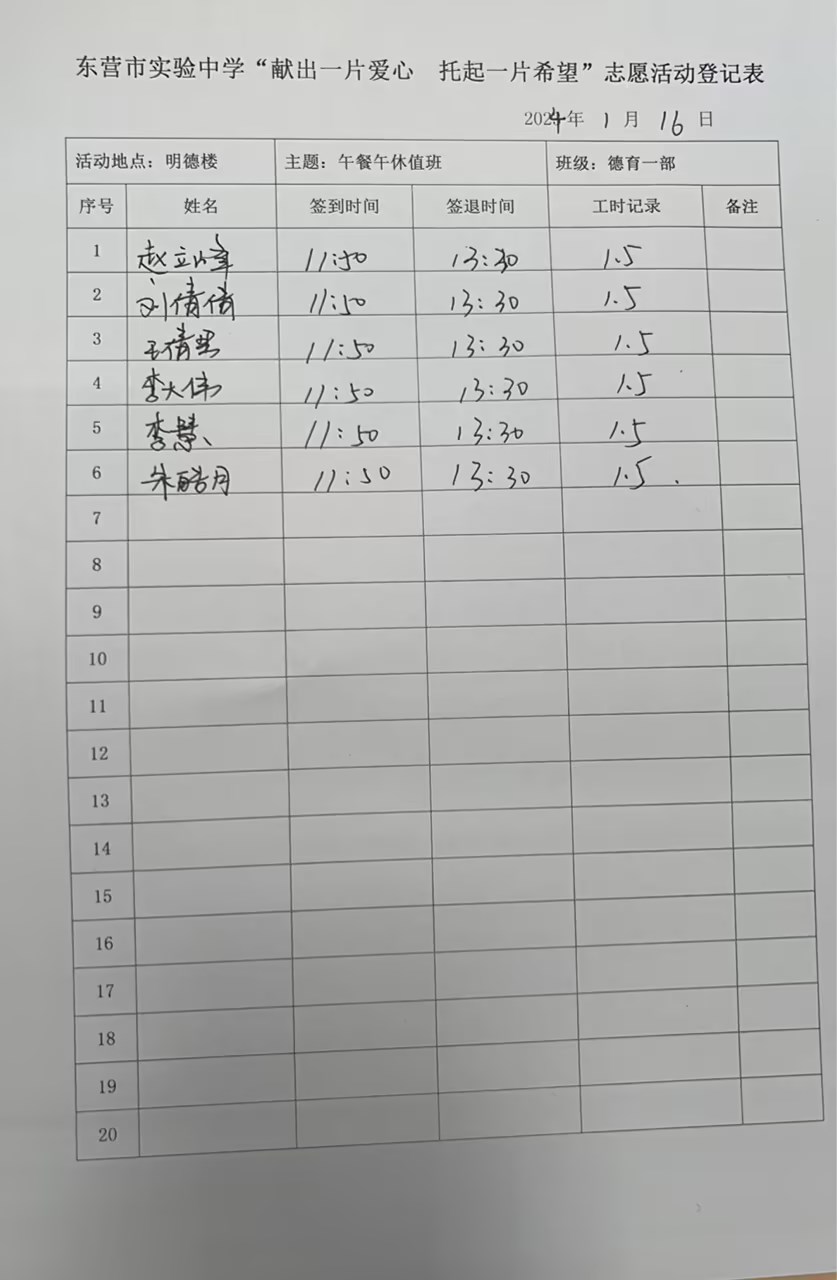 东营市实验中学“献出一片爱心 托起一片希望”志愿活动登记表
2024年 1 月 16 日
活动地点：明德楼 主题：午餐午休值班 班级：德育一部
序号 姓名 签到时间 签退时间 工时记录 备注
1 赵立峰 11:50 13:30 1.5
2 刘倩倩 11:50 13:30 1.5
3 王倩 11:50 13:30 1.5
4 李大伟 11:50 13:30 1.5
5 李慧 11:50 13:30 1.5
6 朱皓月 11:50 13:30 1.5
7
8
9
10
11
12
13
14
15
16
17
18
19
20